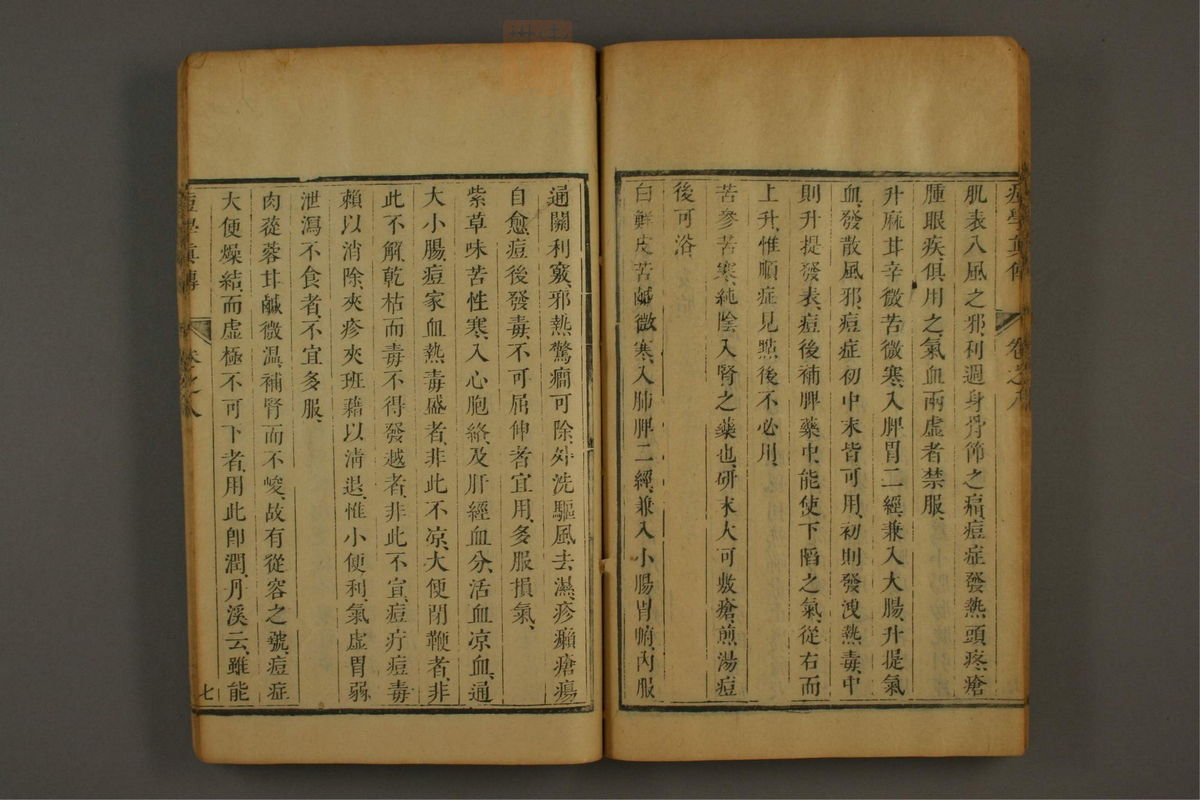 痘學真傳 卷之八
肌表入風之邪利週身骨節之痛痘症發熱頭疼瘡
腫眼疾俱用之氣血兩虛者禁服、
升麻甘辛微苦微寒入脾胃二經、兼入大腸、升提氣
血、發散風邪、痘症初中末皆可用、初則發洩熱毒、中
則升提發表、痘後補脾藥中、能使下陷之氣、從右而
上升、惟順症見㸃後不必用、
苦參苦寒、純陰入腎之藥也、研末大可敷瘡、煎湯痘
後可浴、
白鮮皮苦鹹微寒、入肺脾二經、兼入小腸胃腑、內服
通關利竅、邪熱驚癇可除、外洗驅風去濕、疹癩瘡瘍
自愈、痘後發毒、不可屈伸者宜用、多服損氣、
紫草味苦性寒、入心胞絡、及肝經血分、活血凉血、通
大小腸、痘家血熱毒盛者、非此不凉、大便閉鞭者、非
此不解、乾枯而毒不得發越者、非此不宣、痘疔痘毒
賴以消除、夾疹夾班藉以清退、惟小便利、氣虛胃弱
泄瀉不食者、不宜多服、
肉蓯蓉甘鹹微溫、補腎而不峻、故有從容之號、痘症
大便燥結、而虛極不可下者、用此卽潤、丹溪云、雖能
痘學真傳 卷之八 七